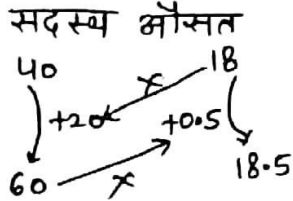 सदस्य औसत
40 18
×
+20 +0.5
18.5
60 ×